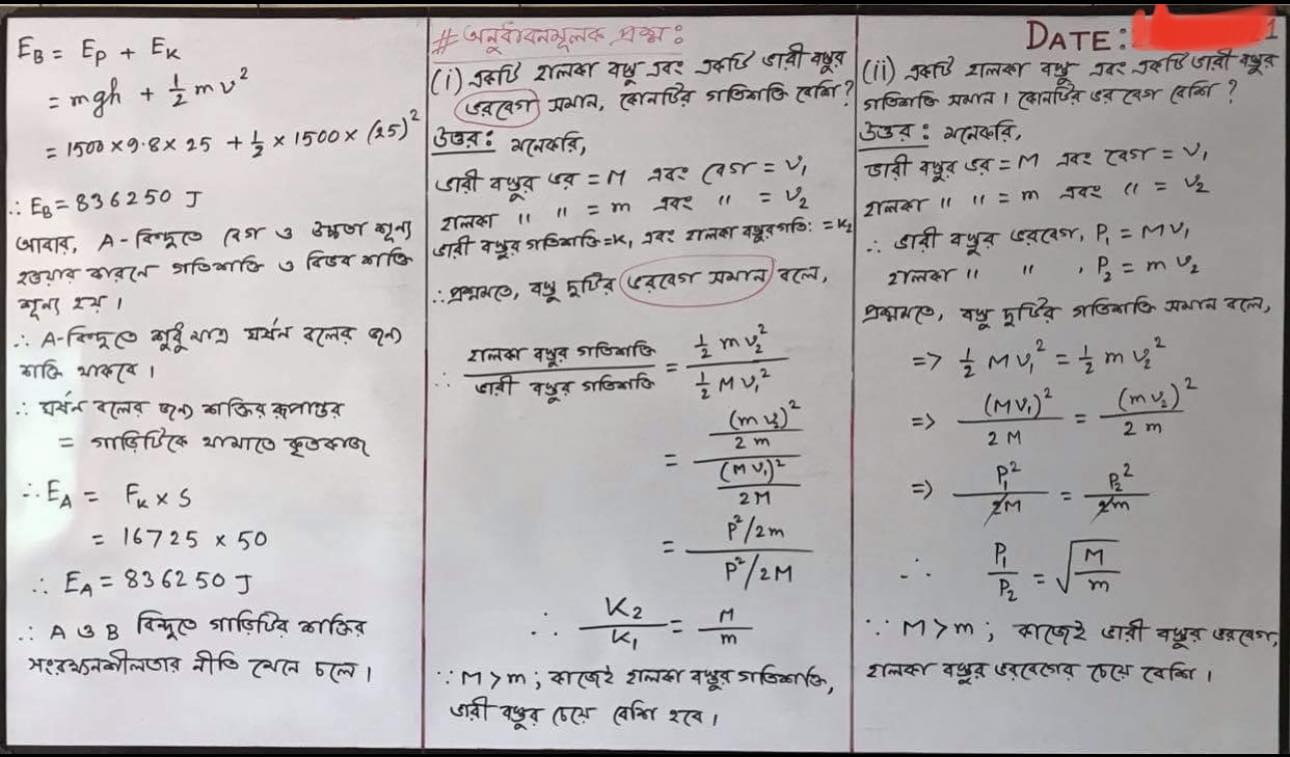 E_B = E_P + E_K
= mgh + ½ mv²
= 1500 × 9.8 × 25 + ½ × 1500 × (25)²
∴ E_B = 836250 J
আবার, A - বিন্দুতে বেগ ও উচ্চতা শূন্য
হওয়ার কারনে গতিশক্তি ও বিভব শক্তি
শূন্য হয়।
∴ A-বিন্দুতে শুধু মাত্র ঘর্ষন বলের জন্য
শক্তি থাকবে।
∴ ঘর্ষন বলের জন্য শক্তির রূপান্তর
= গাড়িটিকে থামাতে কৃতকাজ
∴ E_A = F_K × S
= 16725 × 50
∴ E_A = 836250 J
∴ A ও B বিন্দুতে গাড়িটির শক্তির
সংরক্ষনশীলতার নীতি মেনে চলে।
# অনুধাবনমূলক প্রশ্ন :
(i) একটি হালকা বস্তু এবং একটি ভারী বস্তুর
ভরবেগ সমান, কোনটির গতিশক্তি বেশি?
উত্তর : মনেকরি,
ভারী বস্তুর ভর = M এবং বেগ = v₁
হালকা " " = m এবং " = v₂
ভারী বস্তুর গতিশক্তি = K₁ এবং হালকা বস্তুর গতি: = K₂
∴ প্রশ্নমতে, বস্তু দুটির ভরবেগ সমান বলে,
∴ হালকা বস্তুর গতিশক্তি / ভারী বস্তুর গতিশক্তি = ½ mv₂² / ½ Mv₁²
= (mv₂)²/2m / (Mv₁)²/2M
= P²/2m / P²/2M
∴ K₂/K₁ = M/m
∵ M > m ; কাজেই হালকা বস্তুর গতিশক্তি,
ভারী বস্তুর চেয়ে বেশি হবে।
DATE: 1
(ii) একটি হালকা বস্তু এবং একটি ভারী বস্তুর
গতিশক্তি সমান। কোনটির ভর বেগ বেশি ?
উত্তর : মনেকরি,
ভারী বস্তুর ভর = M এবং বেগ = v₁
হালকা " " = m এবং " = v₂
∴ ভারী বস্তুর ভরবেগ, P₁ = Mv₁
হালকা " " , P₂ = mv₂
প্রশ্নমতে, বস্তু দুটির গতিশক্তি সমান বলে,
=> ½ Mv₁² = ½ mv₂²
=> (Mv₁)²/2M = (mv₂)²/2m
=> P₁²/2M = P₂²/2m
∴ P₁/P₂ = √(M/m)
∵ M > m ; কাজেই ভারী বস্তুর ভরবেগ,
হালকা বস্তুর ভরবেগের চেয়ে বেশি।